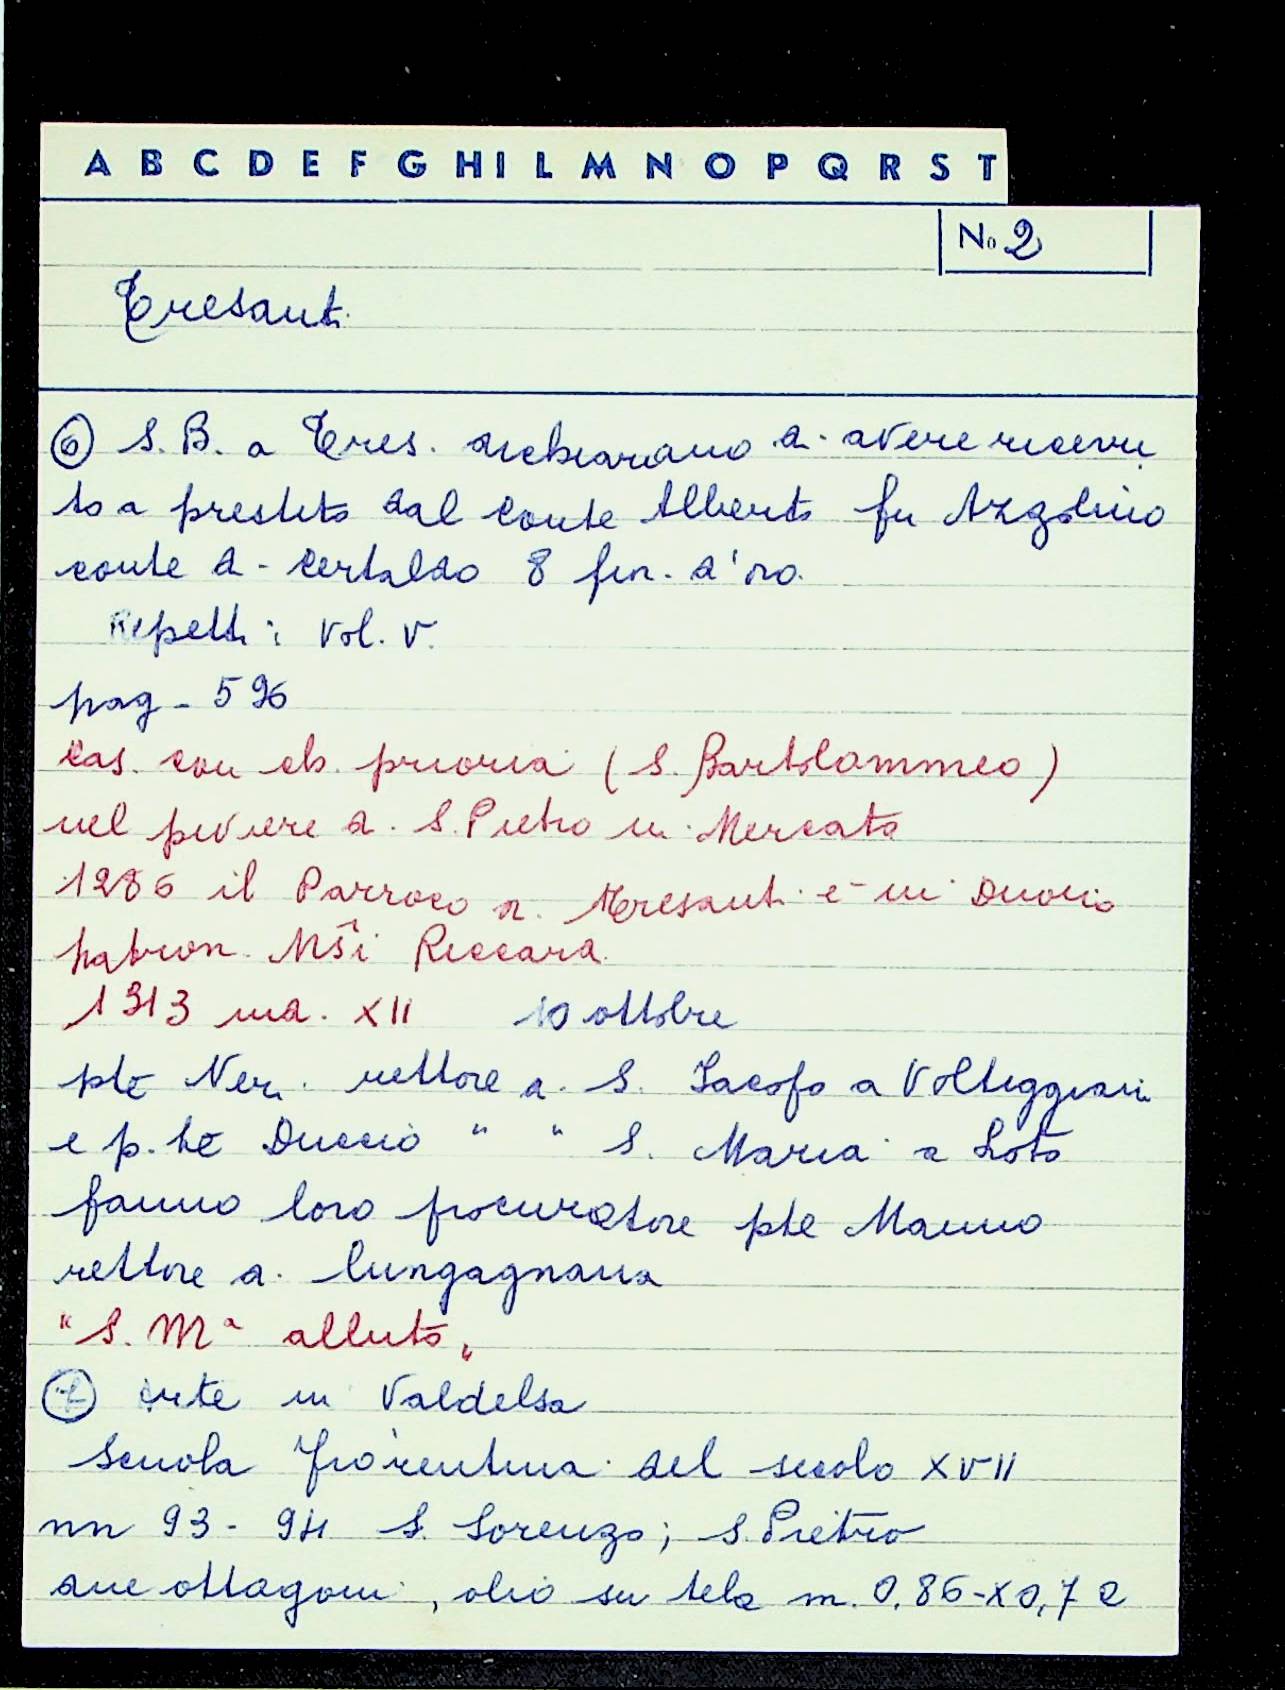 A B C D E F G H I L M N O P Q R S T
No 2
Tresanti
6 S. B. a Tres. dichiarano di avere ricevu
to a prestito dal conte Alberto fu Azzolino
conte di Certaldo 8 fior. d'oro.
Repetti: Vol. V.
pag - 596
Cas. con ch. prioria (S. Bartolommeo)
nel piviere di S. Pietro in Mercato
1286 il Parroco di Tresanti è un Duccio
patron. Mŝi Riccardi
1313 ind. XII 10 ottobre
pte Neri rettore di S. Jacopo a Voltiggiani
e p. te Duccio " " S. Maria a Loto
fanno loro procuratore pte Manno
rettore di Lungagnana
"S. Ma alluto"
7 Arte in Valdelsa
Scuola Fiorentina del secolo XVII
nn 93 - 94 S. Lorenzo; S. Pietro
due ottagoni, olio su tela m. 0,86 - x 0,72